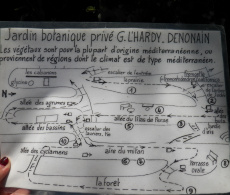 Jardin botanique privé G. LHARDY. DENONAIN
Les végétaux sont pour la plupart d'origine méditerranéenne, ou
proviennent de régions dont le climat est de type méditerranéen
les colonnes
escalier de l'entrée
N
allée des agrumes
allée des lilas de Perse
allée des bassins
escalier des
allée des cyclamens
aire du milan
terrasse
ovale
la forêt